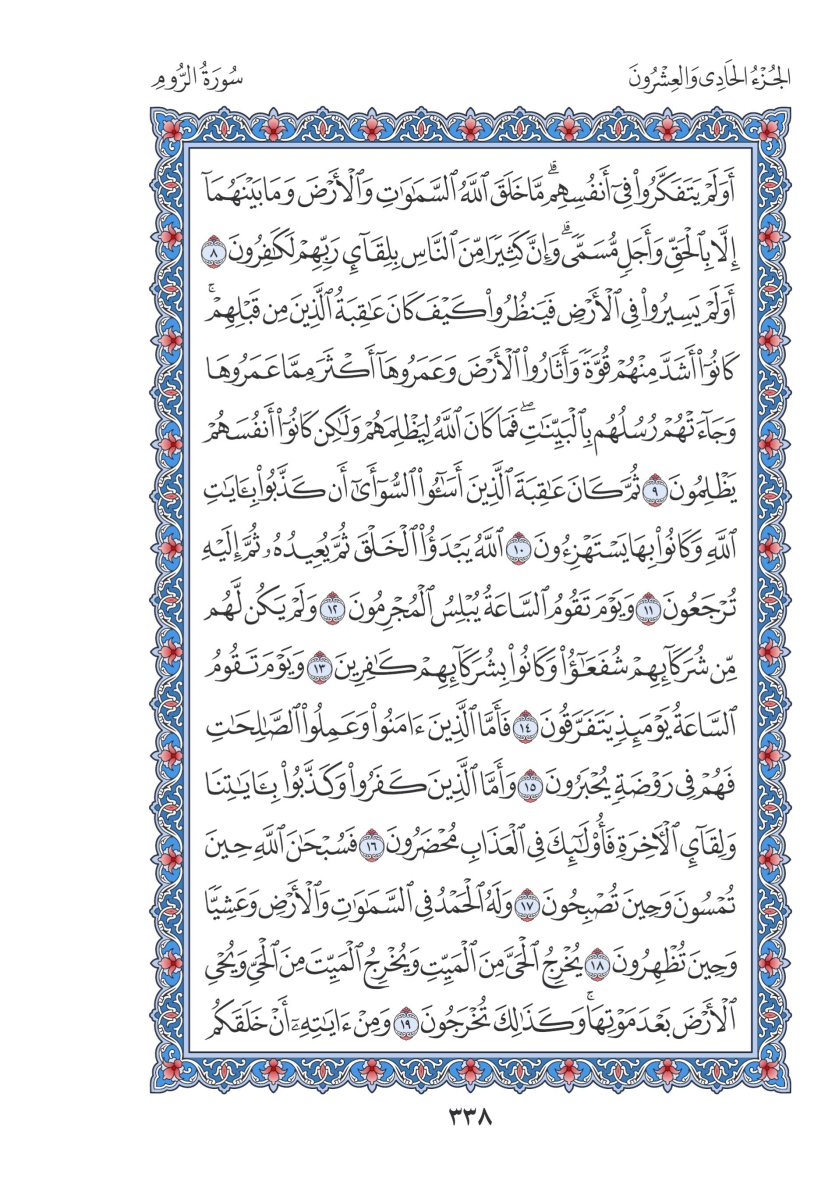 الجُزْءُ الحَادِى وَالعِشْرُونَ
سُورَةُ الرُّومِ
أَوَلَمْ يَتَفَكَّرُوا۟ فِىٓ أَنفُسِهِم ۗ مَّا خَلَقَ ٱللَّهُ ٱلسَّمَٰوَٰتِ وَٱلْأَرْضَ وَمَا بَيْنَهُمَآ
إِلَّا بِٱلْحَقِّ وَأَجَلٍ مُّسَمًّى ۗ وَإِنَّ كَثِيرًا مِّنَ ٱلنَّاسِ بِلِقَآئِ رَبِّهِمْ لَكَٰفِرُونَ ٨
أَوَلَمْ يَسِيرُوا۟ فِى ٱلْأَرْضِ فَيَنظُرُوا۟ كَيْفَ كَانَ عَٰقِبَةُ ٱلَّذِينَ مِن قَبْلِهِمْ ۚ
كَانُوٓا۟ أَشَدَّ مِنْهُمْ قُوَّةً وَأَثَارُوا۟ ٱلْأَرْضَ وَعَمَرُوهَآ أَكْثَرَ مِمَّا عَمَرُوهَا
وَجَآءَتْهُمْ رُسُلُهُم بِٱلْبَيِّنَٰتِ ۖ فَمَا كَانَ ٱللَّهُ لِيَظْلِمَهُمْ وَلَٰكِن كَانُوٓا۟ أَنفُسَهُمْ
يَظْلِمُونَ ٩ ثُمَّ كَانَ عَٰقِبَةَ ٱلَّذِينَ أَسَٰٓـُٔوا۟ ٱلسُّوٓأَىٰٓ أَن كَذَّبُوا۟ بِـَٔايَٰتِ
ٱللَّهِ وَكَانُوا۟ بِهَا يَسْتَهْزِءُونَ ١٠ ٱللَّهُ يَبْدَؤُا۟ ٱلْخَلْقَ ثُمَّ يُعِيدُهُۥ ثُمَّ إِلَيْهِ
تُرْجَعُونَ ١١ وَيَوْمَ تَقُومُ ٱلسَّاعَةُ يُبْلِسُ ٱلْمُجْرِمُونَ ١٢ وَلَمْ يَكُن لَّهُم
مِّن شُرَكَآئِهِمْ شُفَعَٰٓؤُا۟ وَكَانُوا۟ بِشُرَكَآئِهِمْ كَٰفِرِينَ ١٣ وَيَوْمَ تَقُومُ
ٱلسَّاعَةُ يَوْمَئِذٍ يَتَفَرَّقُونَ ١٤ فَأَمَّا ٱلَّذِينَ ءَامَنُوا۟ وَعَمِلُوا۟ ٱلصَّٰلِحَٰتِ
فَهُمْ فِى رَوْضَةٍ يُحْبَرُونَ ١٥ وَأَمَّا ٱلَّذِينَ كَفَرُوا۟ وَكَذَّبُوا۟ بِـَٔايَٰتِنَا
وَلِقَآئِ ٱلْءَاخِرَةِ فَأُو۟لَٰٓئِكَ فِى ٱلْعَذَابِ مُحْضَرُونَ ١٦ فَسُبْحَٰنَ ٱللَّهِ حِينَ
تُمْسُونَ وَحِينَ تُصْبِحُونَ ١٧ وَلَهُ ٱلْحَمْدُ فِى ٱلسَّمَٰوَٰتِ وَٱلْأَرْضِ وَعَشِيًّا
وَحِينَ تُظْهِرُونَ ١٨ يُخْرِجُ ٱلْحَىَّ مِنَ ٱلْمَيِّتِ وَيُخْرِجُ ٱلْمَيِّتَ مِنَ ٱلْحَىِّ وَيُحْىِ
ٱلْأَرْضَ بَعْدَ مَوْتِهَا ۚ وَكَذَٰلِكَ تُخْرَجُونَ ١٩ وَمِنْ ءَايَٰتِهِۦٓ أَنْ خَلَقَكُم
٣٣٨